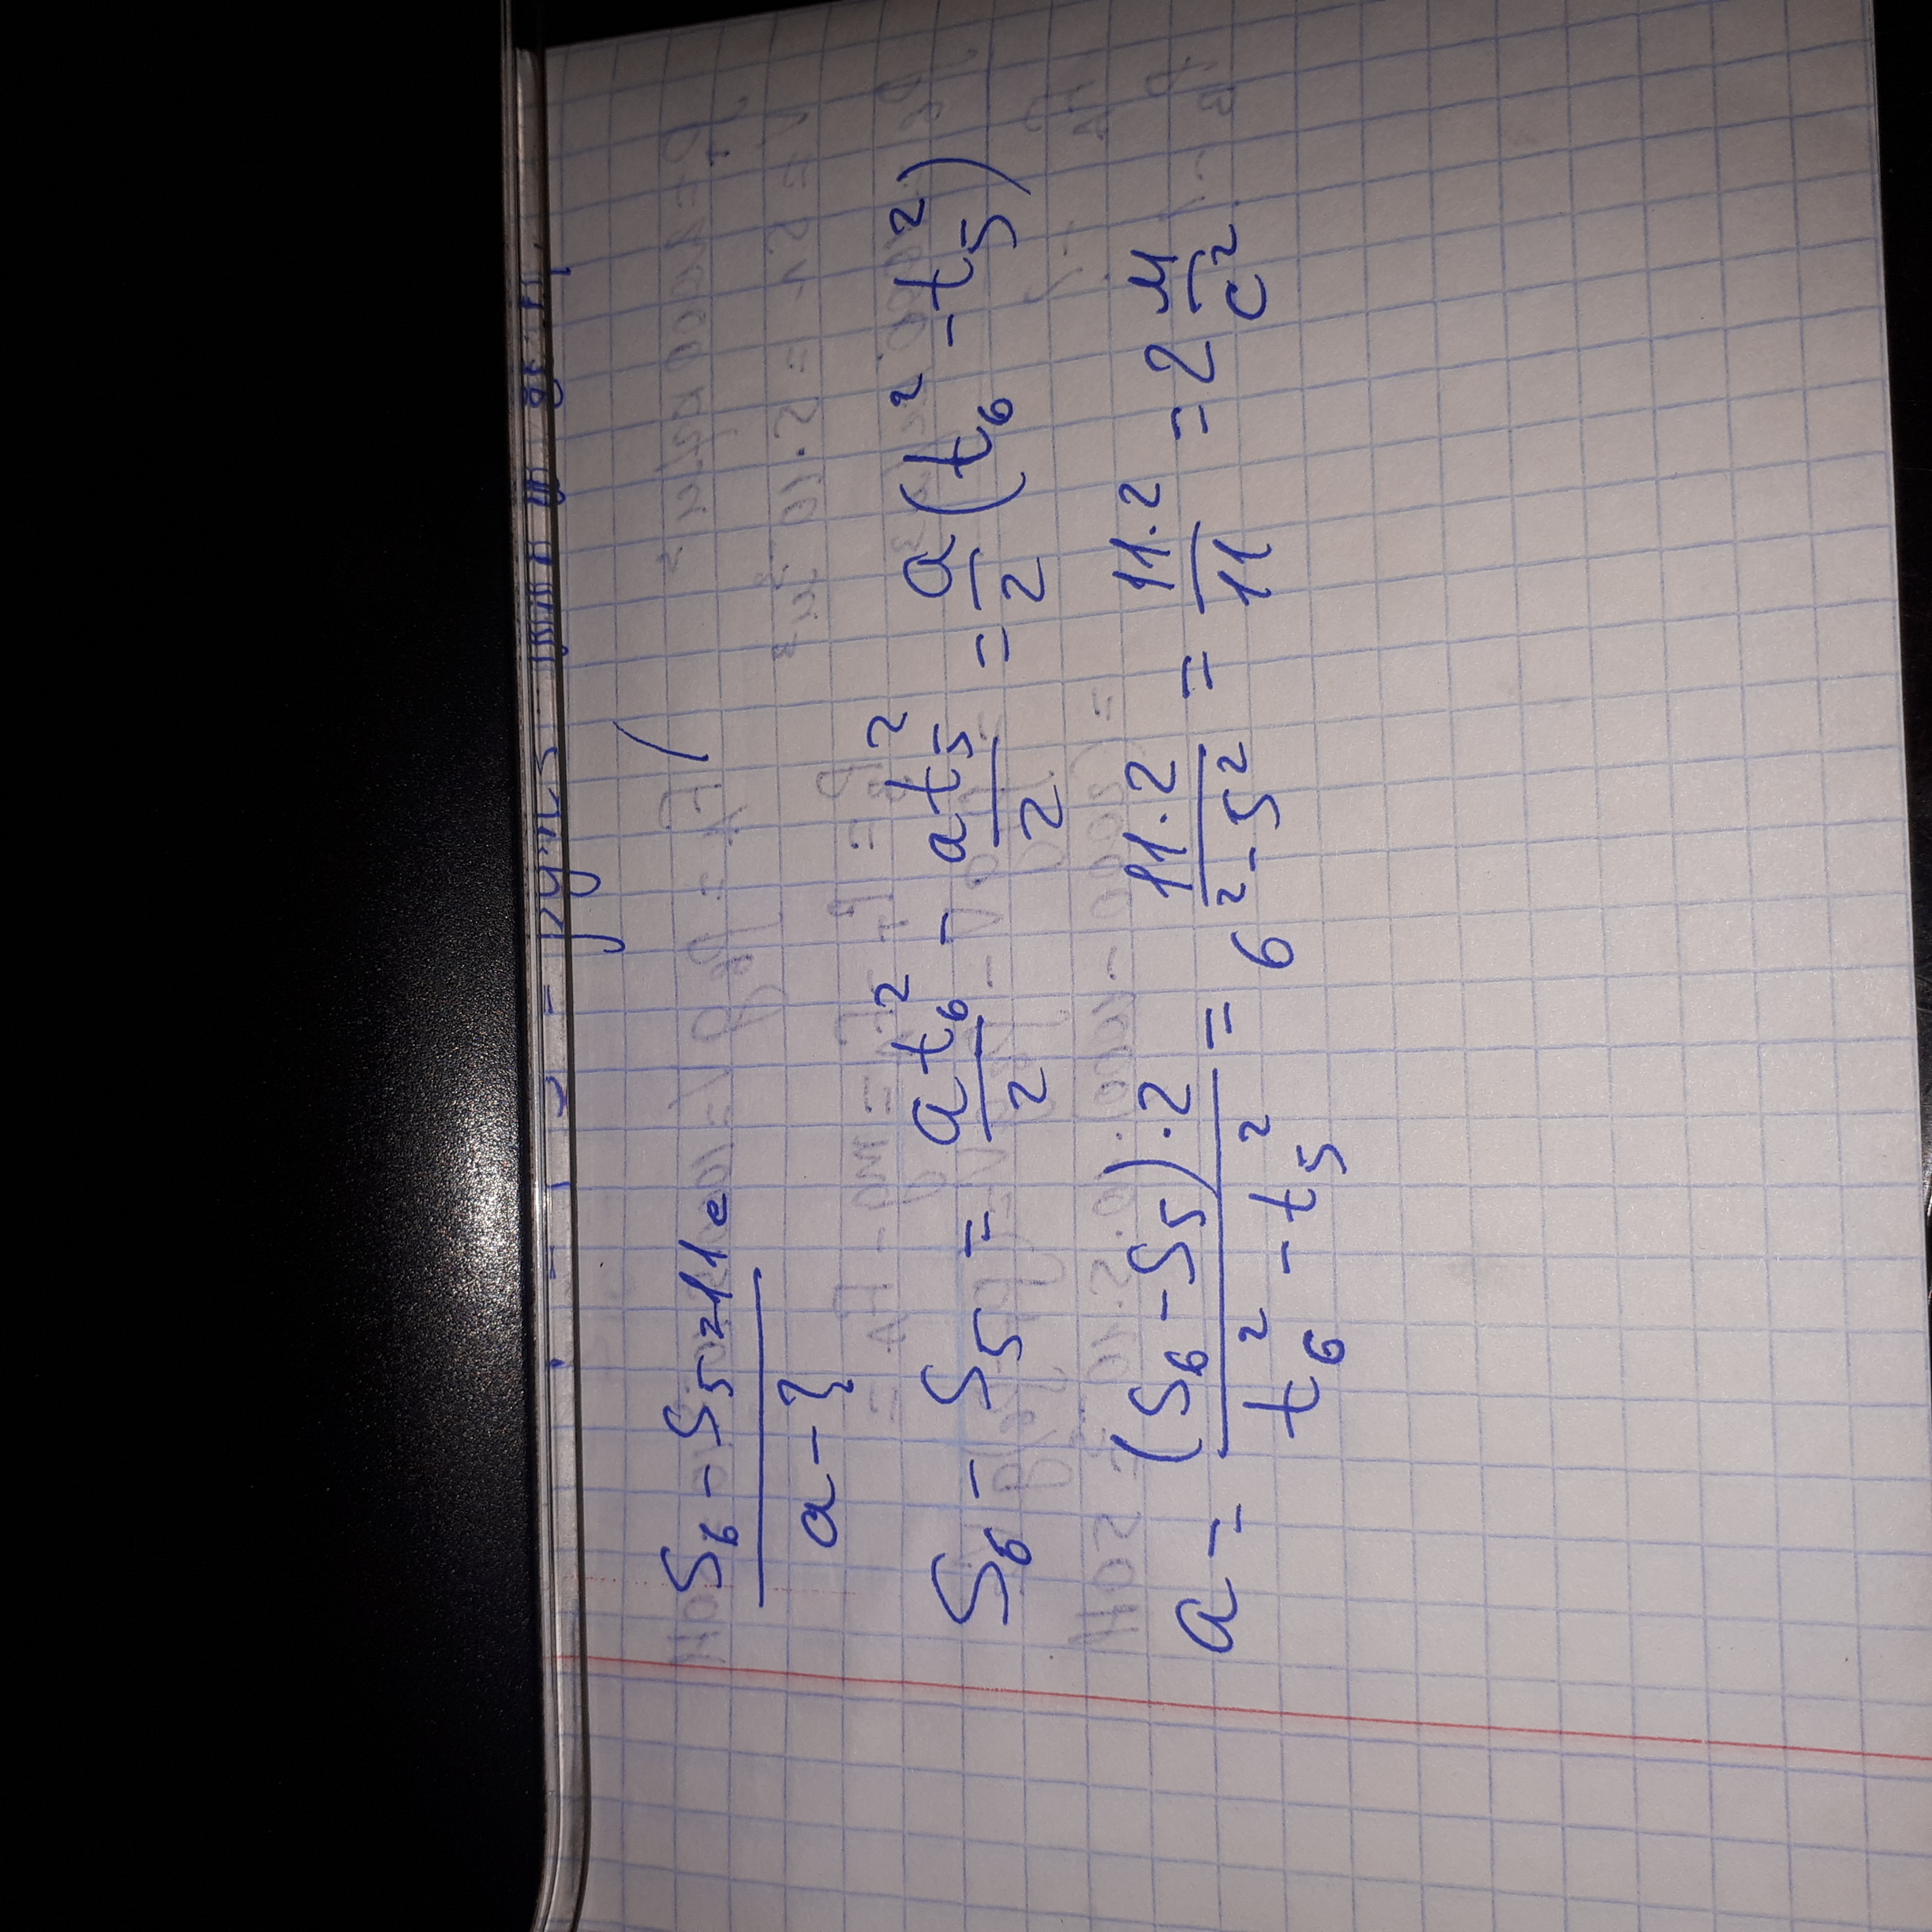 S₆ - S₅ = 11 е
a - ?
S₆ - S₅ = at₆²/2 - at₅²/2 = a/2 (t₆² - t₅²)
a = (S₆ - S₅) · 2 / t₆² - t₅² = 11 · 2 / 6² - 5² = 11 · 2 / 11 = 2 м/с²